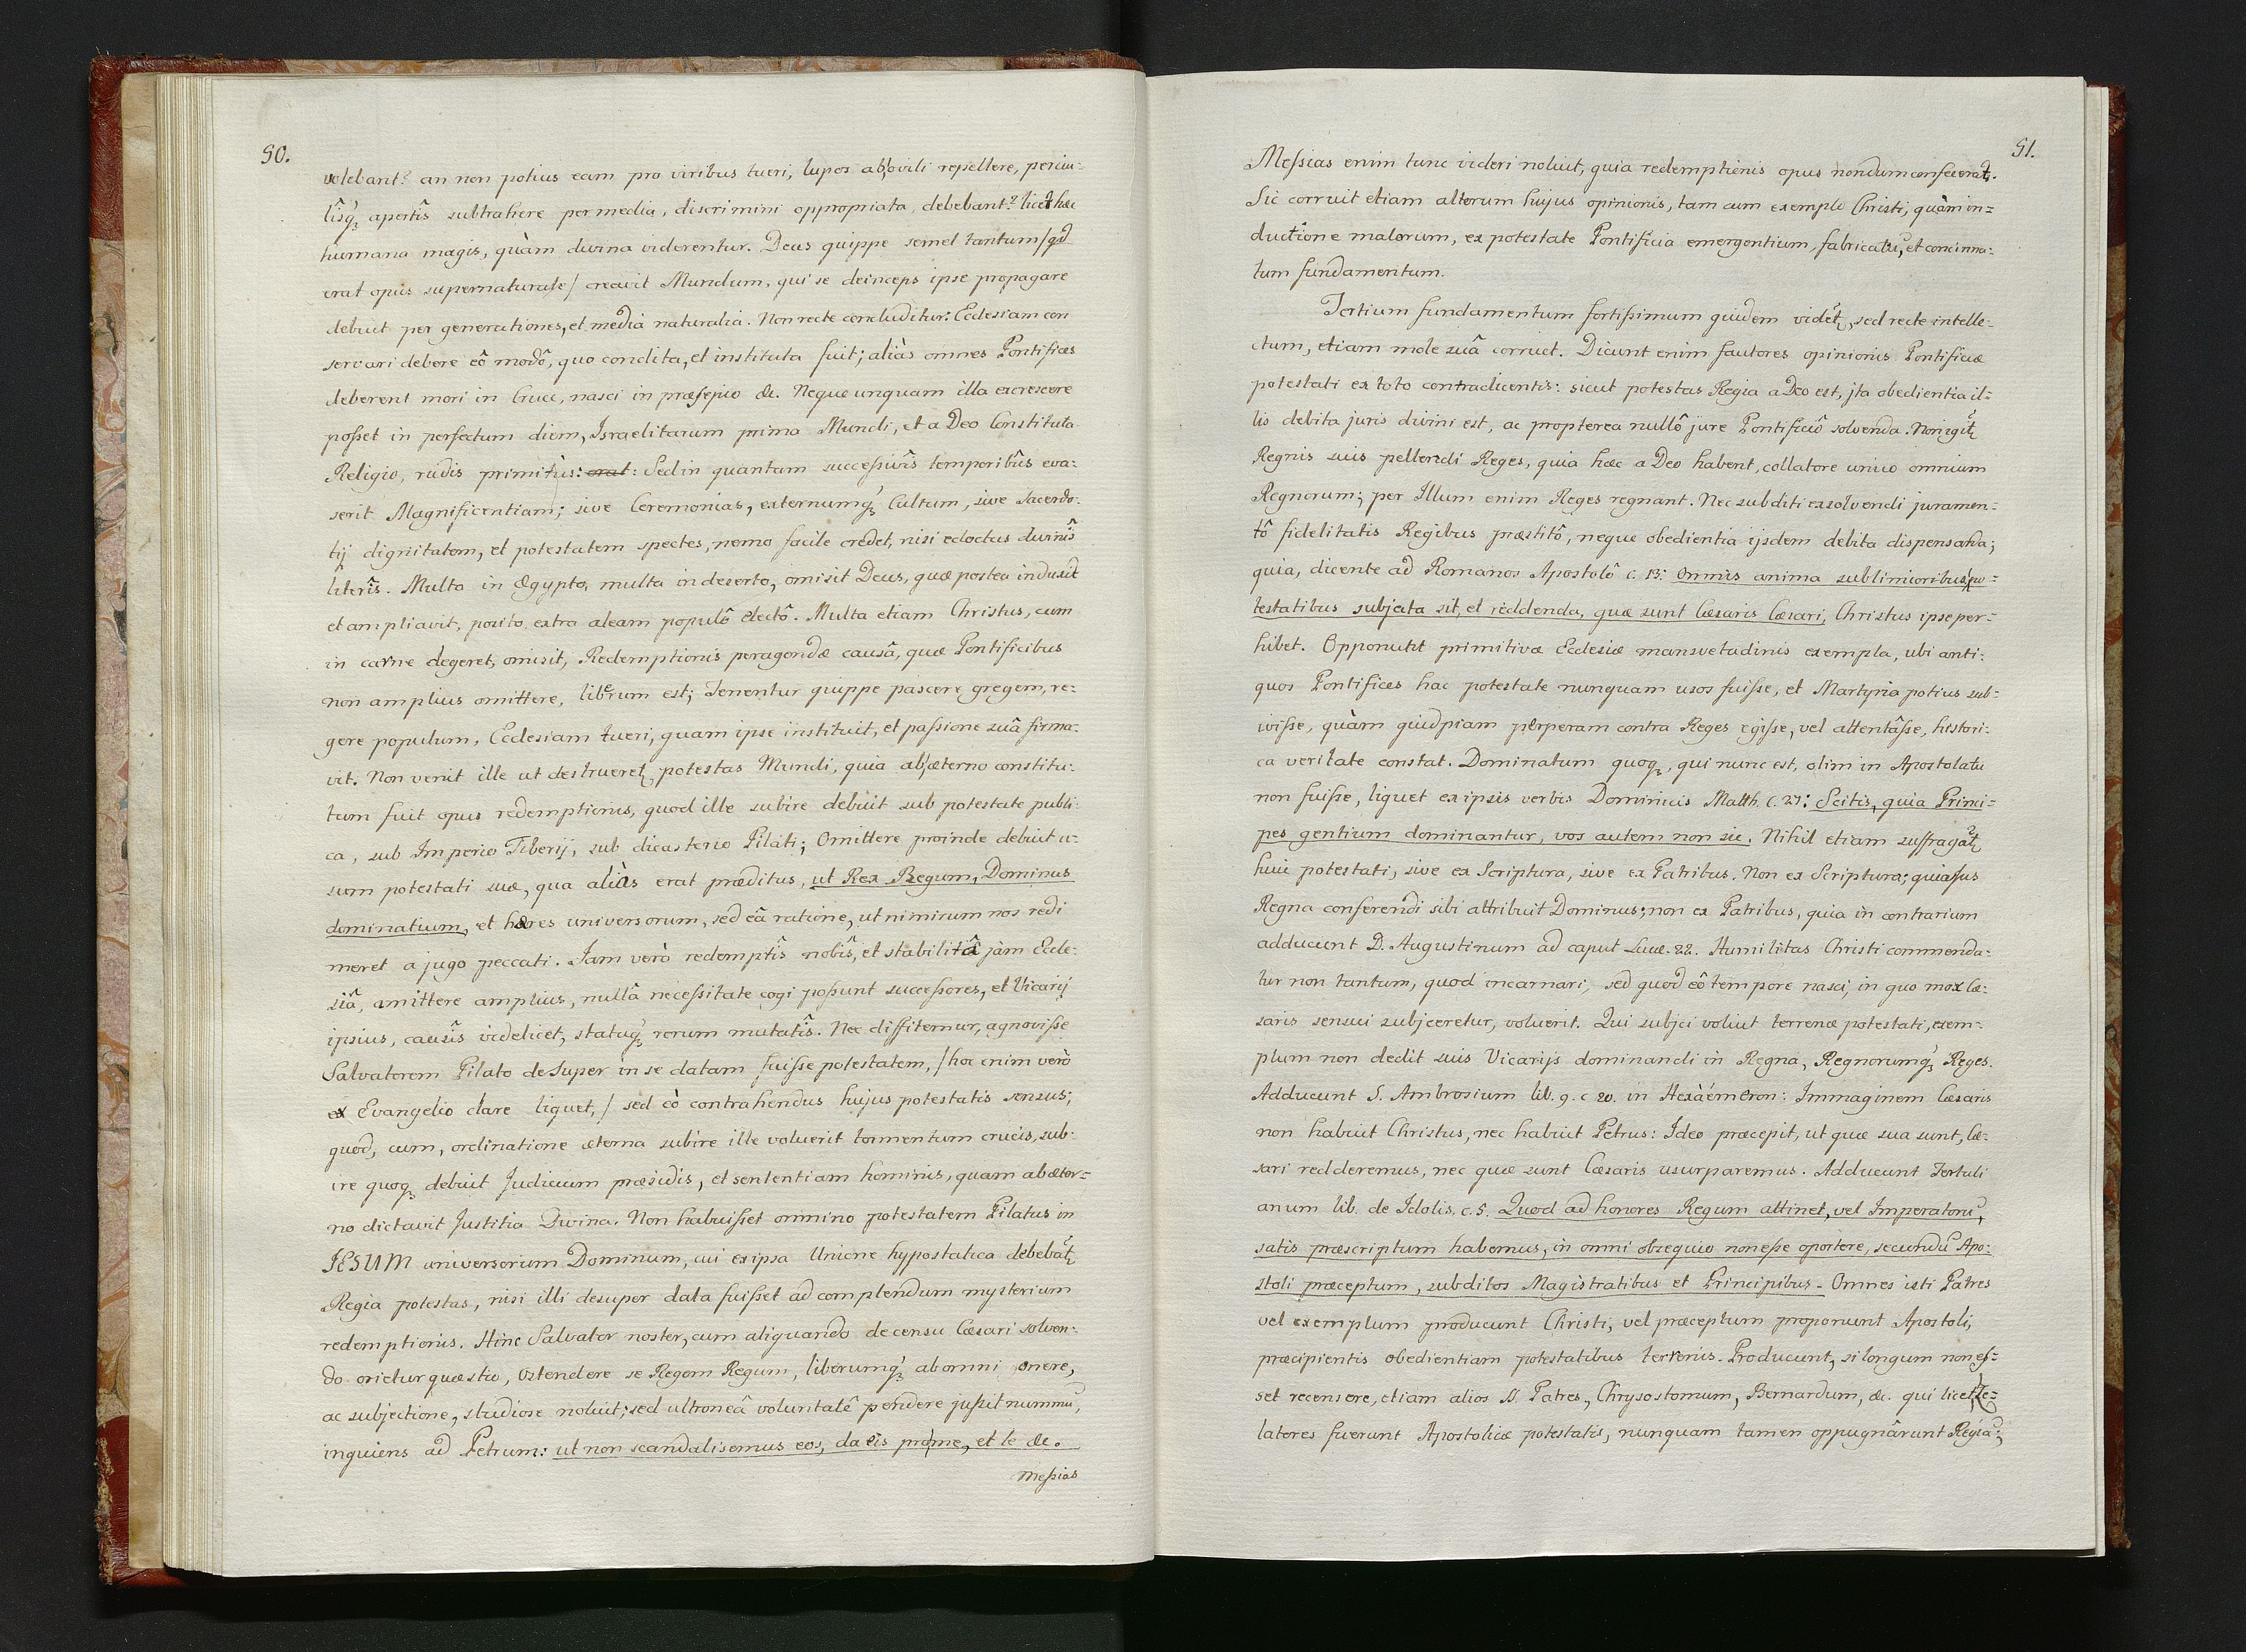 50.
volebant? an non potius eam pro viribus tueri, lupos ab ovili repellere, pericu-
lîsq₃ apertîs subtrahere per media, discrimini oppropriata, debebant? licet hæc
humana magis, quàm divina viderentur. Deus quippe semel tantum /qđ
erat opus supernaturale/ creavit Mundum, qui se deinceps ipse propagare
debuit per generationes, et media naturalia. Non recte concluditur: Ecclesiam con
servari debere eô modô, quo condita, et instituta fuit; aliàs omnes Pontifices
deberent mori in Cruce, nasci in præsepio &c. Neque unquam illa excrescere
posset in perfectum diem, Israelitarum prima Mundi, et a Deo Constituta
Religio, rudis primitùs: erat: Sed in quantum successivîs temporibûs eva:
serit Magnificentiam; sive Ceremonias, externumq₃ Cultum, sive Sacerdo:
tij dignitatem, et potestatem spectes, nemo facile credet, nisi edoctus divinîs
literîs. Multa in Ægypto, multa in deserto, omisit Deus, quæ postea induxit
et ampliavit, posito extra aleam populô electô. Multa etiam Christus, cum
in carne degeret, omisit, Redemptionis peragendæ causâ, quæ Pontificibus
non amplius omittere, liberum est; Tenentur quippe pascere gregem, re:
gere populum, Ecclesiam tueri, quam ipse instituit, et passione suâ firma:
vit. Non venit ille ut destrueret potestas Mundi, quia ab æterno constitu:
tum fuit opus redemptionis, quod ille subire debuit sub potestate publi:
ca, sub Imperio Tiberij, sub dicasterio Pilati; Omittere proinde debuit u:
sum potestati suæ, qua aliàs erat præditus, ut Rex Regum, Dominus
dominatium, et hæres universorum, sed eâ ratione, ut nimirum nos redi
meret a jugo peccati. Jam verò redemptîs nobîs, et stabilitâ jàm Eccle:
siâ, omittere amplius, nullâ necessitate cogi possunt successores, et Vicarij
ipsius, causîs videlicet, statuq₃ rerum mutatîs. Nec diffitemur, agnovisse
Salvatorem Pilato deSuper in se datam fuisse potestatem, /hoc enim verò
ex Evangelio clare liquet,/ sed eò contrahendus hujus potestatis sensus;
quod, cum, ordinatione æterna subire ille voluerit tormentum crucis, sub:
ire quoq₃ debuit Judicium præsidis, et sententiam hominis, quam ab æter-
no dictavit Justitia Divina. Non habuisset omnino potestatem Pilatus in
JESUM universorum Dominum, cui ex ipsa Unione hypostatica debebat̃
Regia potestas, nisi illi desuper data fuisset ad complendum mysterium
redemptionis. Hinc Salvator noster, cum aliquando de censu Cæsari solven-
do orietur quæstio, ostendere se Regem Regum, liberumq₃ ab omni onere,
ac subjectione, studiose noluit; sed ultroneâ voluntatê pendere jussit nummũ,
inquiens ad Petrum: ut non scandalisemus eos, da eis pro me, et te &c.
Messias
51.
Messias enim tunc videri noluit, quia redemptionis opus nondum confecerat.
Sic corruit etiam alterum hujus opinionis, tam cum exemplo Christi, quàm in=
ductione malorum, ex potestate Pontificia emergentium, fabricatũ, et concinna:
tum fundamentum.
Tertium fundamentum fortissimum quidem videt̃, sed recte intelle-
ctum, etiam mole suâ corruet. Dicunt enim fautores opinionis Pontificiæ
potestati ex toto contradicentis: sicut potestas Regia a Deo est, jta obedientia il=
lis debita juris divini est, ac propterea nullô jure Pontificiô solvenda. Non igit̃
Regnis suis pellendi Reges, quia hæc a Deo habent, collatore unico omnium
Regnorum; per Illum enim Reges regnant. Nec subditi exsolvendi juramen-
tô fidelitatis Regibus præstitô, neque obedientia ijsdem debita dispensanda;
quia, dicente ad Romanos Apostolô c. 13: Omnis anima sublimioribus po=
testatibus subjecta sit, et reddenda, quæ sunt Cæsaris Cæsari, Christus ipse per-
hibet. Opponunt primitivæ Ecclesiæ mansvetudinis exempla, ubi anti:
quos Pontifices hac potestate nunquam usos fuisse, et Martyria potius sub-
ivisse, quàm quidpiam perperam contra Reges egisse, vel attentâsse, histori:
ca veritate constat. Dominatum quoq₃, qui nunc est, olim in Apostolatu
non fuisse, liquet ex ipsis verbis Dominicis Matth. C. 27: Scitis, quia Princi=
pes gentium dominantur, vos autem non sic. Nihil etiam suffragat̃
huic potestati, sive ex Scriptura, sive ex Patribus. Non ex Scriptura; quia jus
Regna conferendi sibi attribuit Dominus; non ex Patribus, quia in contrarium
adducunt D. Augustinum ad caput Lucæ. 22. Humilitas Christi commenda:
tur non tantum, quod incarnari, sed quod eô tempore nasci, in quo mox Cæ-
saris sensui subjceretur, voluerit. Qui subjci voluit terrenæ potestati, exem-
plum non dedit suis Vicarijs dominandi in Regna, Regnorumq₃ Reges.
Adducunt S. Ambrosium lib. 9. c 20. in Hexàémeron: Immaginem Cæsaris
non habuit Christus, nec habuit Petrus: Ideo præcepit, ut quæ sua sunt, Cæ-
sari redderemus, nec quæ sunt Cæsaris usurparemus. Adducunt Tertuli
anum lib. de Idolis. c. 5. Quod ad honores Regum attinet, vel Imperatorũ,
satis præscriptum habemus, in omni obsequio non esse oportere, secundũ Apo:
stoli præceptum, subditos Magistratibus et Principibus. Omnes isti Patres
vel exemplum producunt Christi, vel præceptum proponunt Apostoli,
præcipientis obedientiam potestatibus terrenis. Producunt, si longum non es=
set recensere, etiam alios SS Patres, Chrysostomum, Bernardum, &c. qui licet Ze=
latores fuerunt Apostolicæ potestatis, nunquam tamen oppugnârunt Regiã;